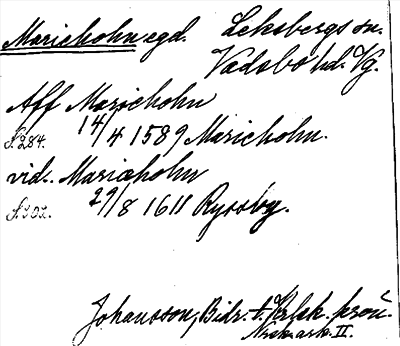 Marieholm egd. Leksbergs sn.
Vadsbo hd. Vg.
Aff Marieholm
s. 284. 14/4 1589 Marieholm.
vid. Marieholm
s. 302. 29/8 1611 Ryssby.
Johansson, Bidr. t. Krlsk. prov.
Nsk. ark. II.